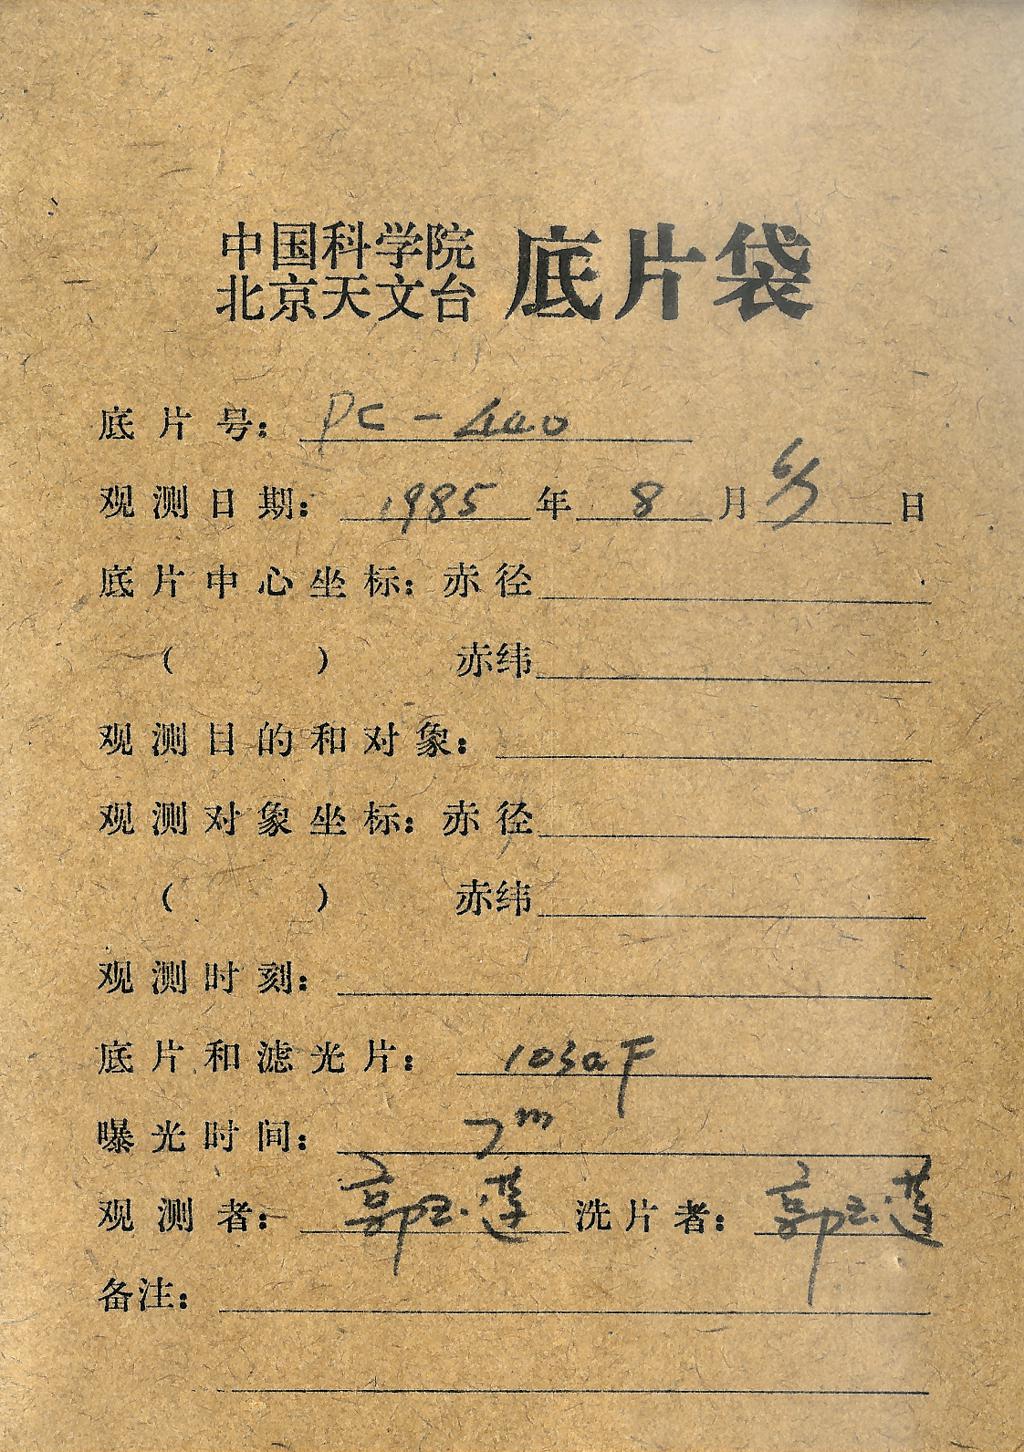 中国科学院
北京天文台 底片袋
底片号: PC-440
观测日期: 1985年8月 日
底片中心坐标: 赤径
( ) 赤纬
观测目的和对象:
观测对象坐标: 赤径
( ) 赤纬
观测时刻:
底片和滤光片: 103aF
曝光时间: 7m
观测者: 郭玉莲 洗片者: 郭玉莲
备注: